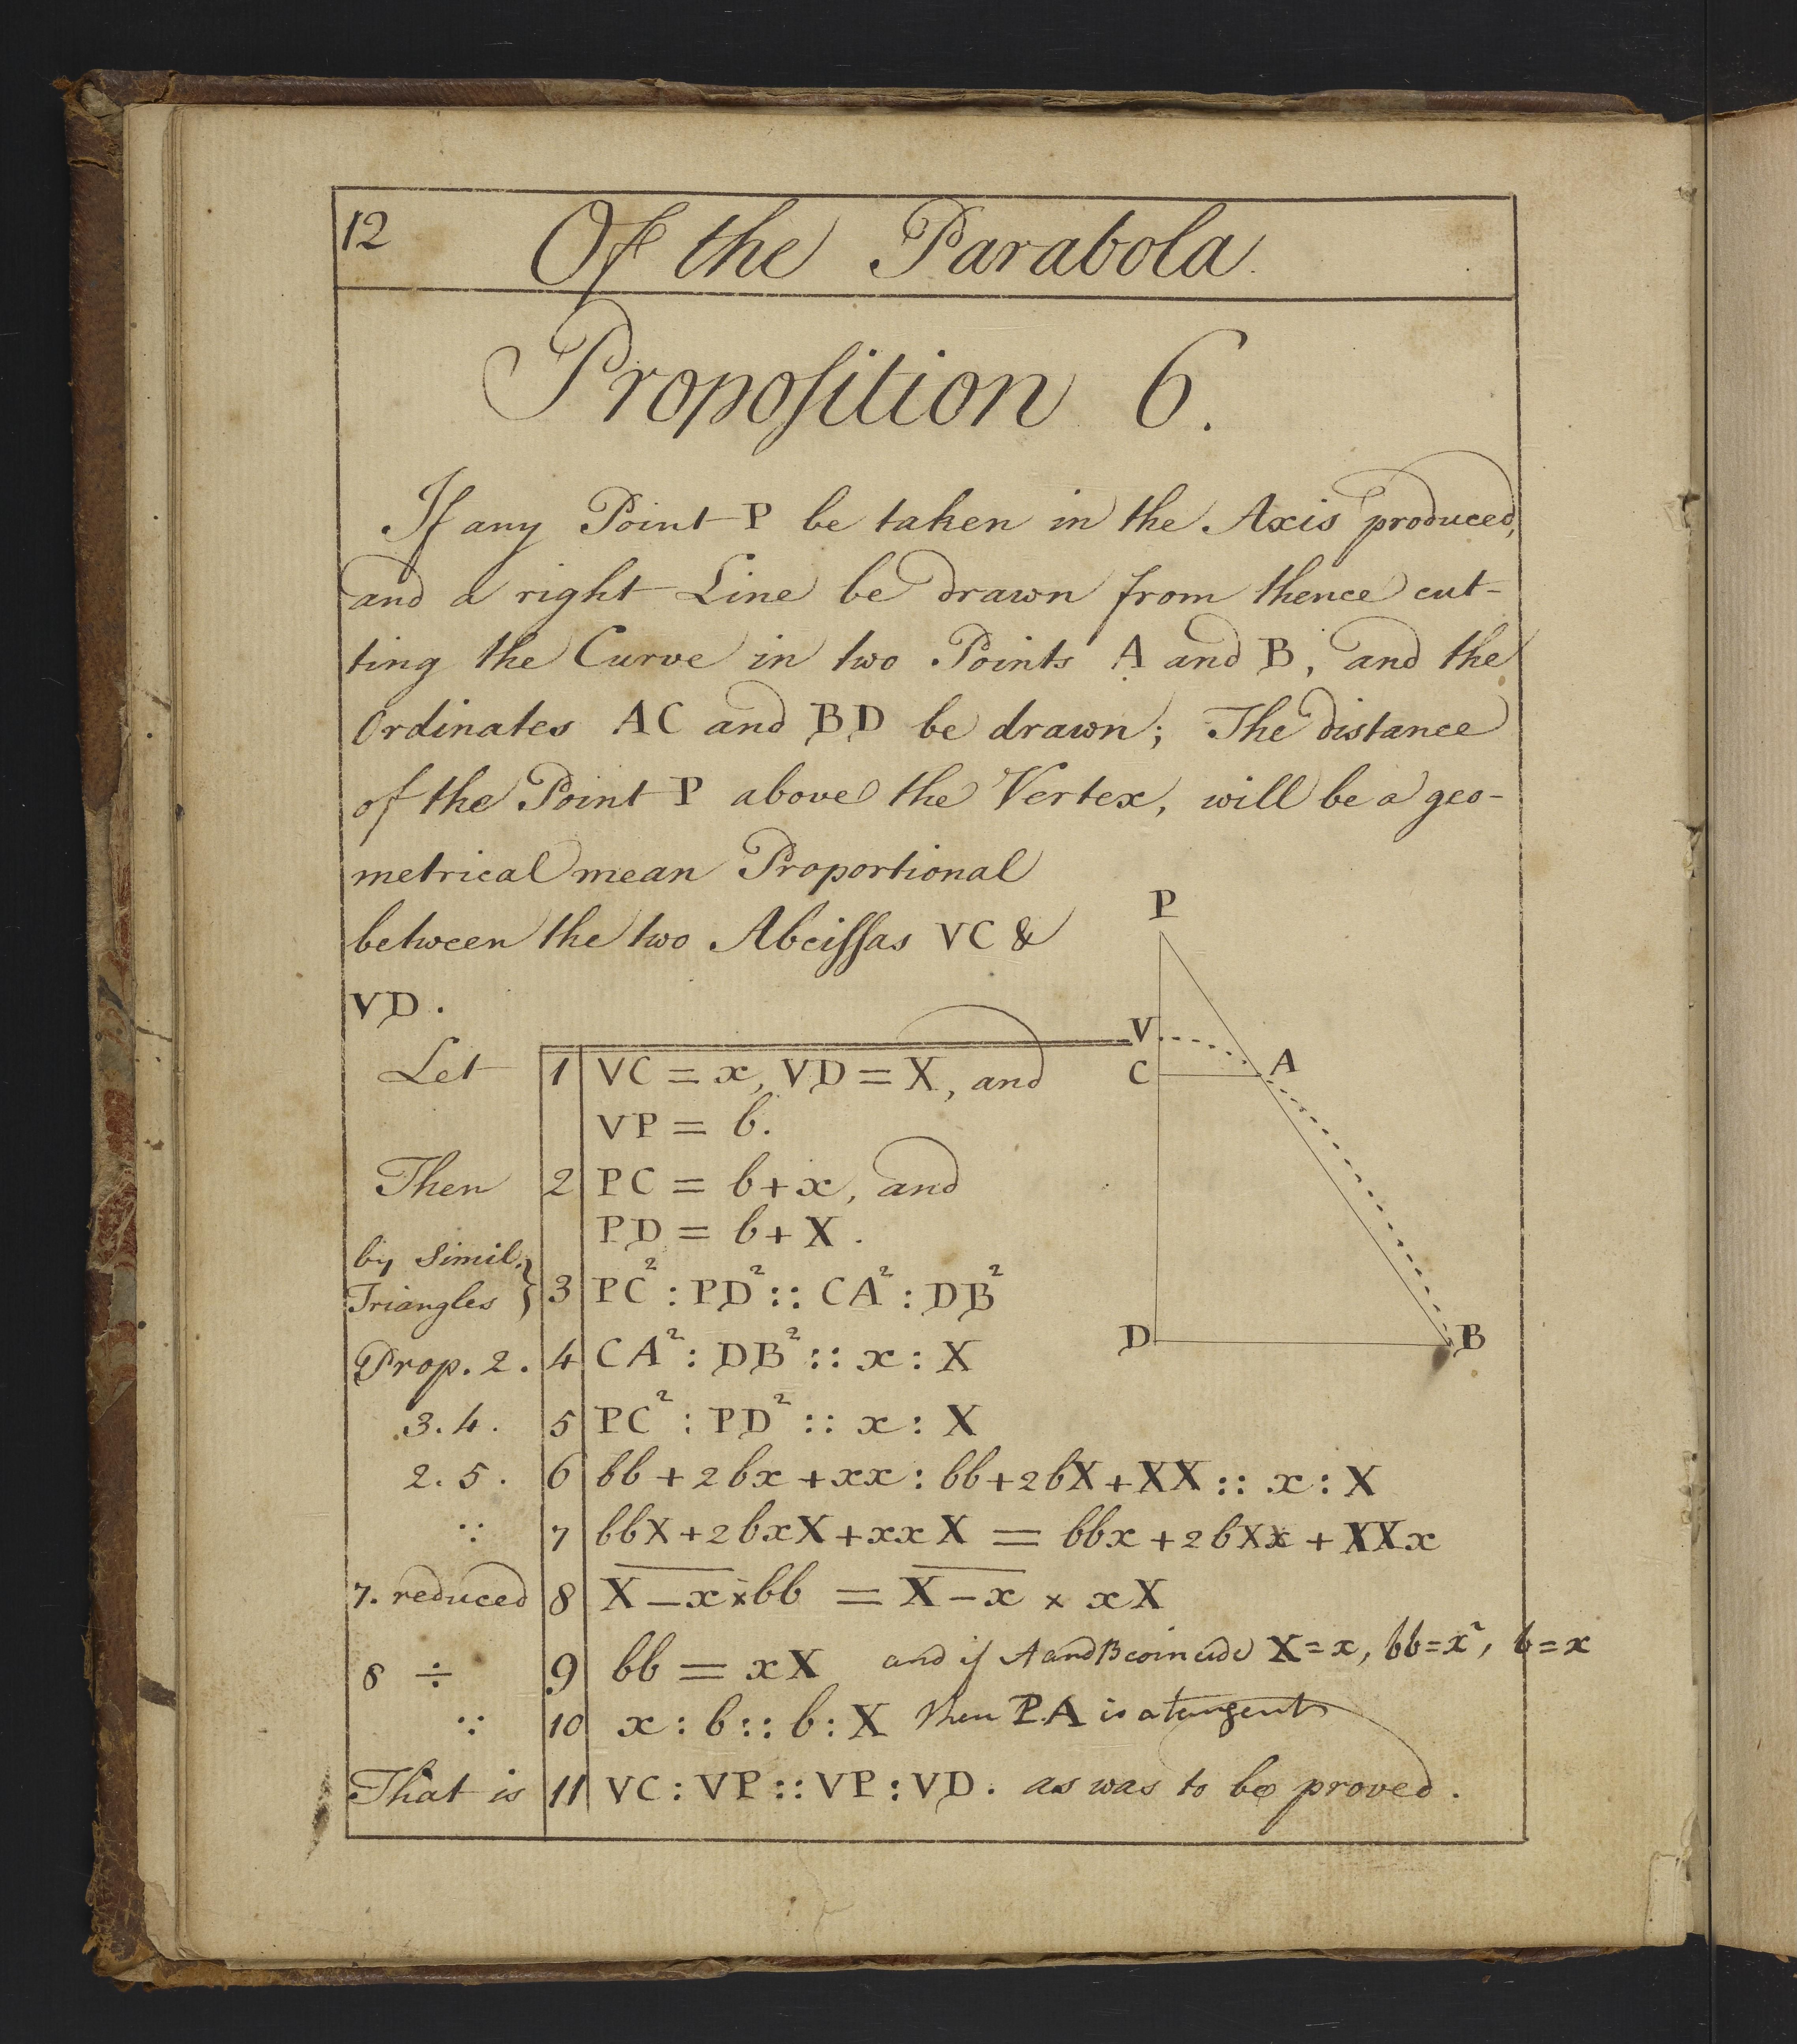 12 Of the Parabola.
Propoſition 6.
If any Point P be taken in the Axis produced,
and a right Line be drawn from thence cut-
ting the Curve in two Points A and B, and the
Ordinates AC and BD be drawn; The distance
of the Point P above the Vertex, will be a geo-
metrical mean Proportional
between the two Abciſſas VC &
VD.
P
V
C
A
D
B
Let 1 VC = x, VD = X, and
VP = b.
Then 2 PC = b+x, and
PD = b+X.
by Simil.
Triangles } 3 PC² : PD² :: CA² : DB²
Prop. 2. 4 CA² : DB² :: x : X
3. 4. 5 PC² : PD² :: x : X
2. 5. 6 bb + 2bx + xx : bb + 2bX + XX :: x : X
∵ 7 bbX + 2bxX + xxX = bbx + 2bXx + XXx
7. reduced 8 X̅ ̅–̅ ̅x̅ × bb = X̅ ̅–̅ ̅x̅ × xX
8 ÷ 9 bb = xX and if A and B coincide X = x, bb = x², b = x
∵ 10 x : b :: b : X then PA is a tangent
That is 11 VC : VP :: VP : VD. as was to be proved.